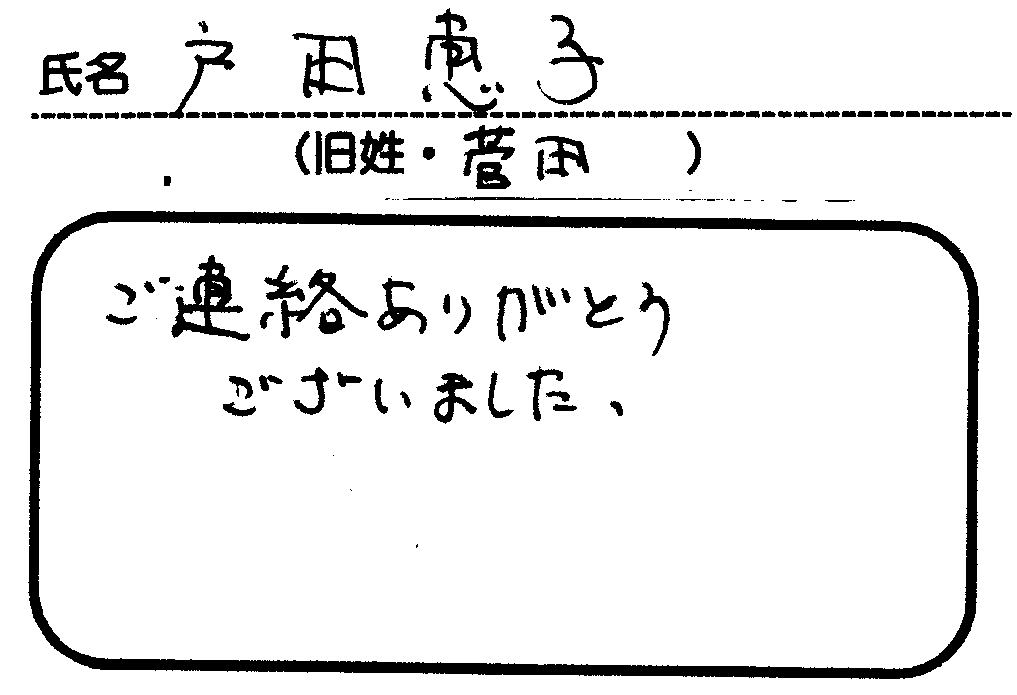 氏名 戸田恵子
(旧姓・菅田 )
ご連絡ありがとう
ございました、